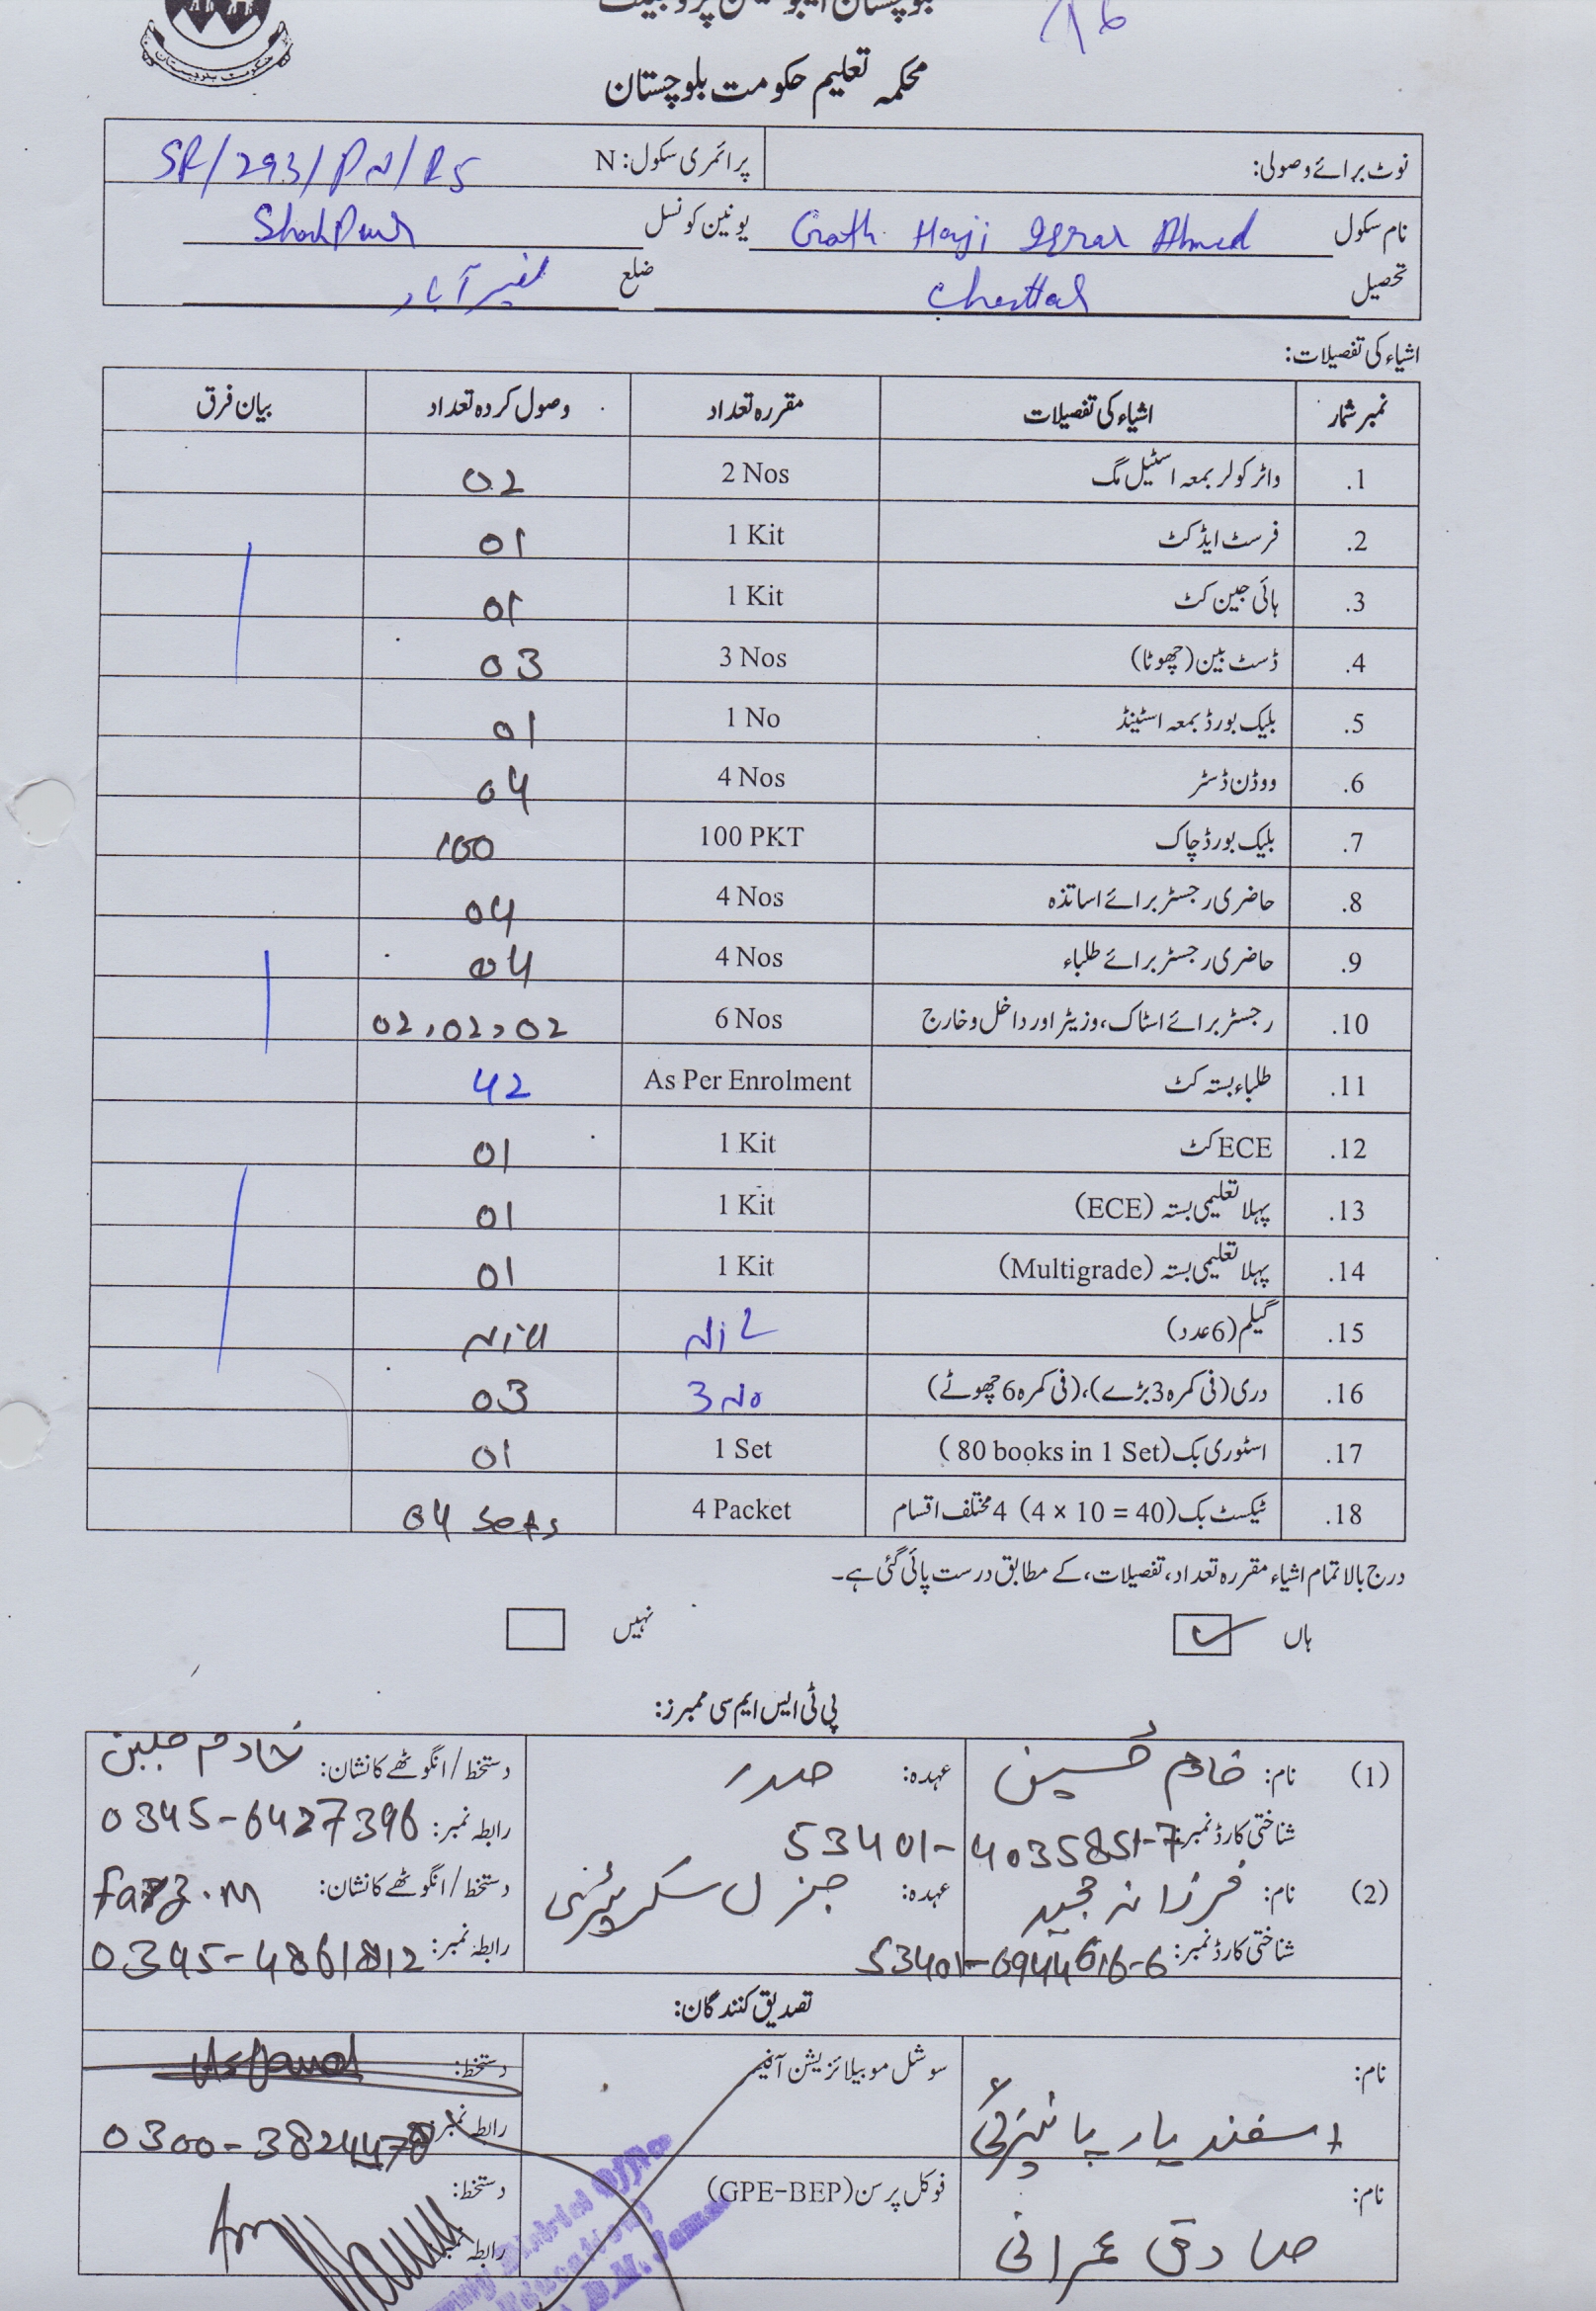 بلوچستان ایجوکیشن پروجیکٹ
16
حکومت بلوچستان
محکمہ تعلیم حکومت بلوچستان
نوٹ برائے وصولی: پرائمری سکول: N SR/293/PN/RS
نام سکول Goath Haji Israr Ahmed یونین کونسل ShahPur
تحصیل Chattar ضلع نصیر آباد
اشیاء کی تفصیلات:
نمبر شمار اشیاء کی تفصیلات مقررہ تعداد وصول کردہ تعداد بیان فرق
1. واٹر کولر بمعہ اسٹیل مگ 2 Nos 02
2. فرسٹ ایڈ کٹ 1 Kit 01
3. ہائی جین کٹ 1 Kit 01
4. ڈسٹ بین (چھوٹا) 3 Nos 03
5. بلیک بورڈ بمعہ اسٹینڈ 1 No 01
6. ووڈن ڈسٹر 4 Nos 04
7. بلیک بورڈ چاک 100 PKT 100
8. حاضری رجسٹر برائے اساتذہ 4 Nos 04
9. حاضری رجسٹر برائے طلباء 4 Nos 04
10. رجسٹر برائے اسٹاک، وزیٹر اور داخل و خارج 6 Nos 02,02,02
11. طلباء بستہ کٹ As Per Enrolment 42
12. ECE کٹ 1 Kit 01
13. پہلا تعلیمی بستہ (ECE) 1 Kit 01
14. پہلا تعلیمی بستہ (Multigrade) 1 Kit 01
15. گیلم (6 عدد) Nil Nill
16. دری (فی کمرہ 3 بڑے)، (فی کمرہ 6 چھوٹے) 3 No 03
17. اسٹوری بک (80 books in 1 Set) 1 Set 01
18. ٹیکسٹ بک (4 × 10 = 40) 4 مختلف اقسام 4 Packet 04 Sets
درج بالا تمام اشیاء مقررہ تعداد، تفصیلات، کے مطابق درست پائی گئی ہے۔
ہاں نہیں
پی ٹی ایس ایم سی ممبرز:
(1) نام: خادم حسین عہدہ: صدر دستخط/انگوٹھے کا نشان: خادم حسین
شناختی کارڈ نمبر: 53401-4035851-7 رابطہ نمبر: 0345-6427396
(2) نام: فرزانہ مجید عہدہ: جنرل سکریٹری دستخط/انگوٹھے کا نشان: farz.m
شناختی کارڈ نمبر: 53401-6944616-6 رابطہ نمبر: 0345-4861812
تصدیق کنندگان:
نام: اسفند یار پانیزئی سوشل موبیلائزیشن آفیسر دستخط:
رابطہ نمبر: 0300-3824478
نام: صادق عمرانی فوکل پرسن (GPE-BEP) دستخط:
رابطہ نمبر:
District Officer
(Education)
D.M. Jamali